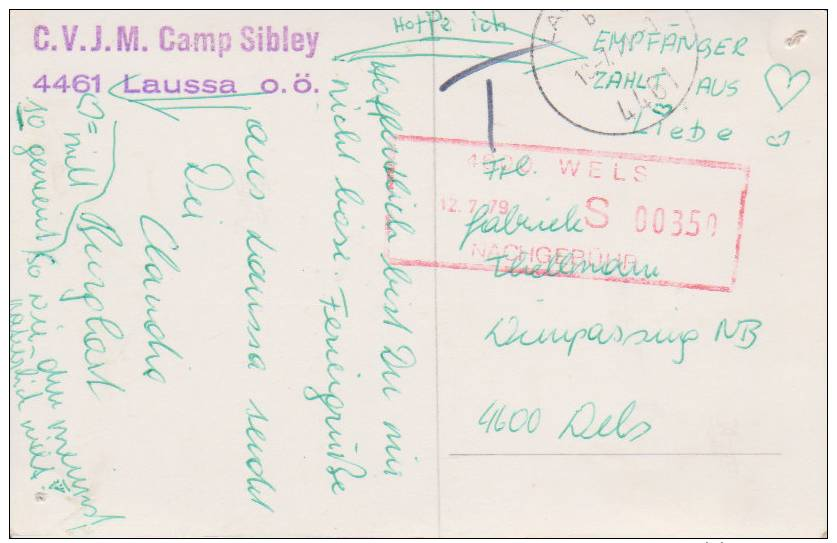 C.V.J.M. Camp Sibley
4461 Laussa o.ö.
Hoffe ich
EMPFÄNGER
ZAHLT AUS
Liebe
4461
4600 WELS
12.7.79
S 00350
NACHGEBÜHR
Frl.
Gabriele
Thellmann
Dimpassing NB
4600 Wels
Hoffentlich bist Du mir
nicht böse. Feriengrüße
aus Laussa sendet
Dir
Claudia
Burghart
= mill
so gemeint so wie du meinst
natürlich nicht